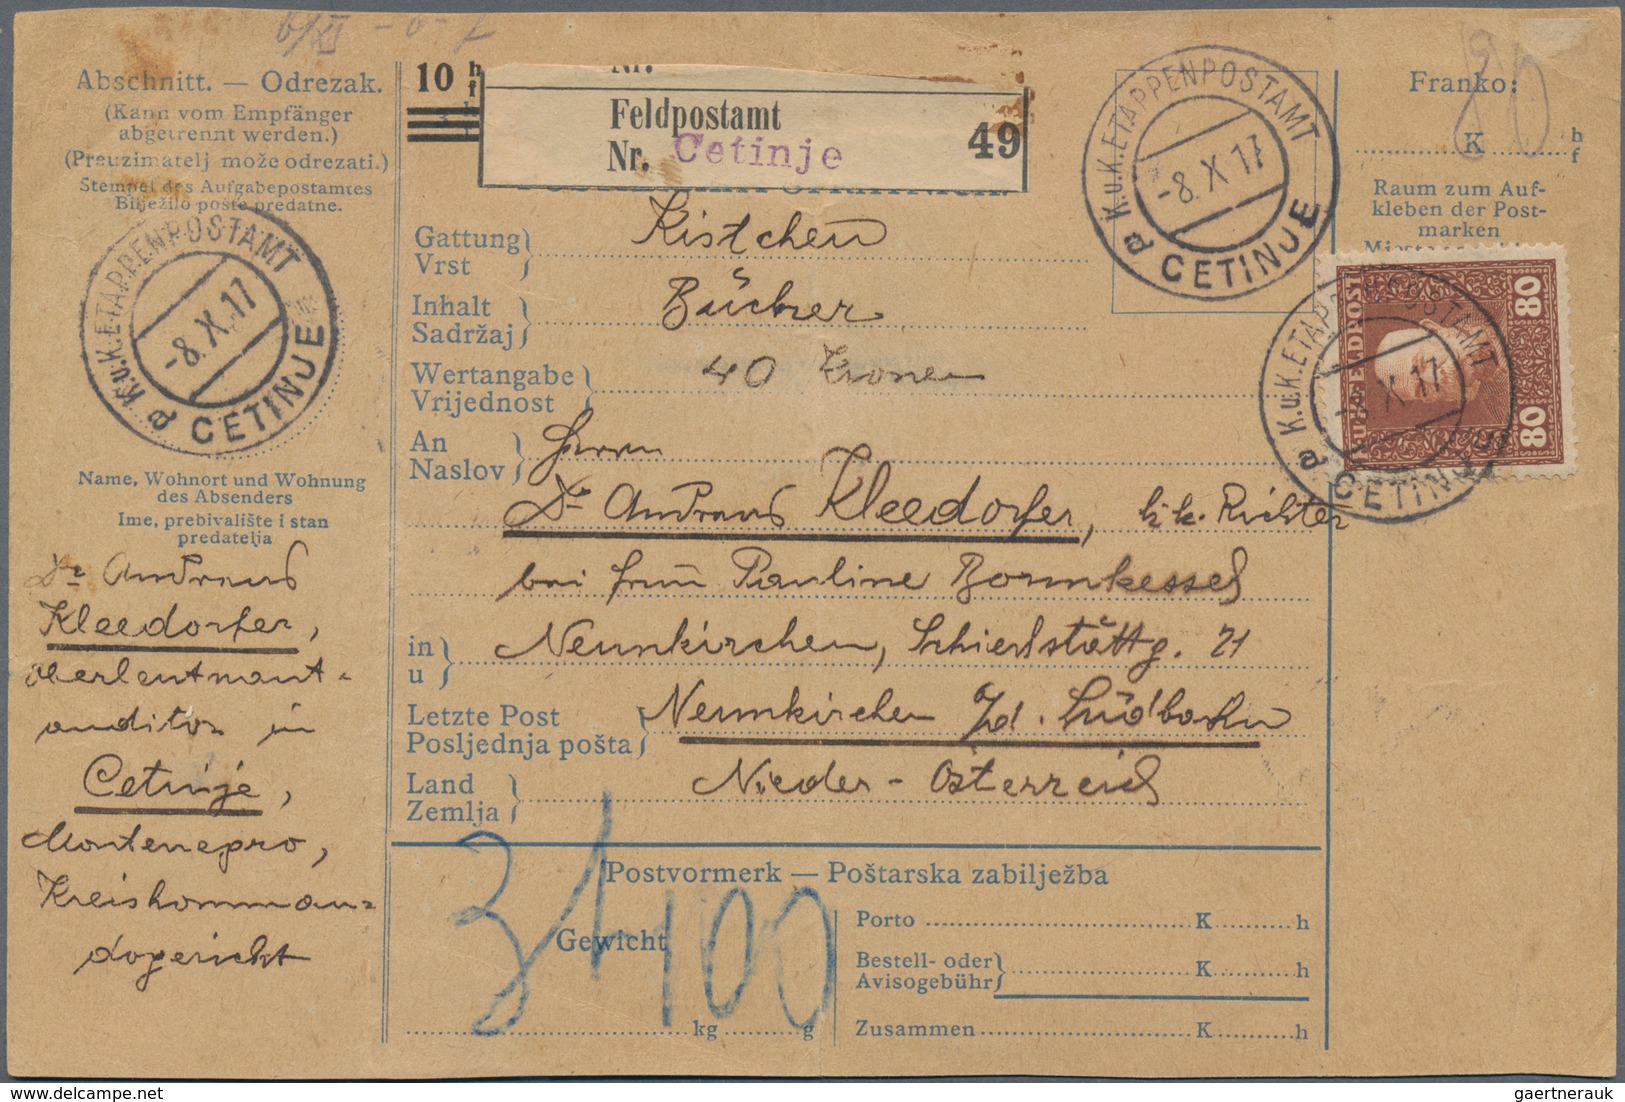 Abschnitt. — Odrezak.
(Kann vom Empfänger
abgetrennt werden.)
(Preuzimatelj može odrezati.)
Stempel des Aufgabepostamtes
Bilježilo pošte predatne.
K.u.K. ETAPPENPOSTAMT
-8.X.17
a CETINJE
Name, Wohnort und Wohnung
des Absenders
Ime, prebivalište i stan
predatelja
Dr Andreas
Kleedorfer,
Oberleutnant-
auditor in
Cetinje,
Montenegro,
Kreiskomman-
dogericht
10 h
f
Nr.
Feldpostamt
Nr. Cetinje
49
K.u.K. ETAPPENPOSTAMT
-8.X.17
a CETINJE
Franko:
80
K h
f
Raum zum Auf-
kleben der Post-
marken
K.u.K. FELDPOST
80 80
K.u.K. ETAPPENPOSTAMT
-8.X.17
a CETINJE
Gattung Kistchen
Vrst
Inhalt Bücher
Sadržaj
Wertangabe 40 Kronen
Vrijednost
An Herrn
Naslov
Dr Andreas Kleedorfer, k.k. Richter
bei Frau Pauline Bornkessel
in Neunkirchen, Schiestättg. 21
u
Letzte Post Neunkirchen a/d. Südbahn
Posljednja pošta
Land Nieder-Österreich
Zemlja
Postvormerk — Poštarska zabilježba
Gewicht
kg g
Porto K h
Bestell- oder
Avisogebühr K h
Zusammen K h
gaertnerauk
delcampe.net